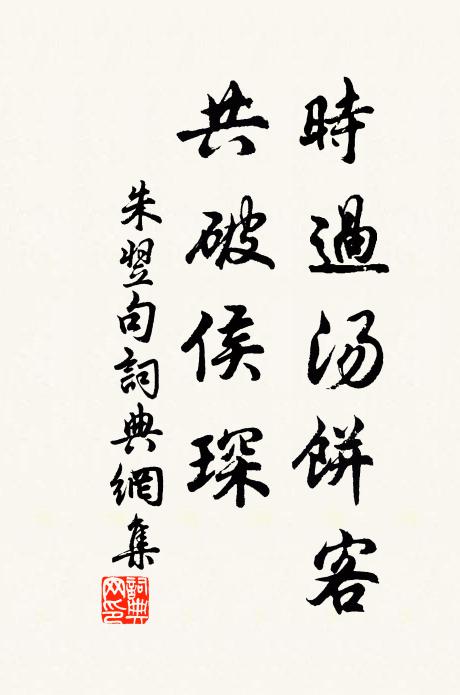 時過汤餅客
共破侯琛
朱翌句詞典網集
詞典網印